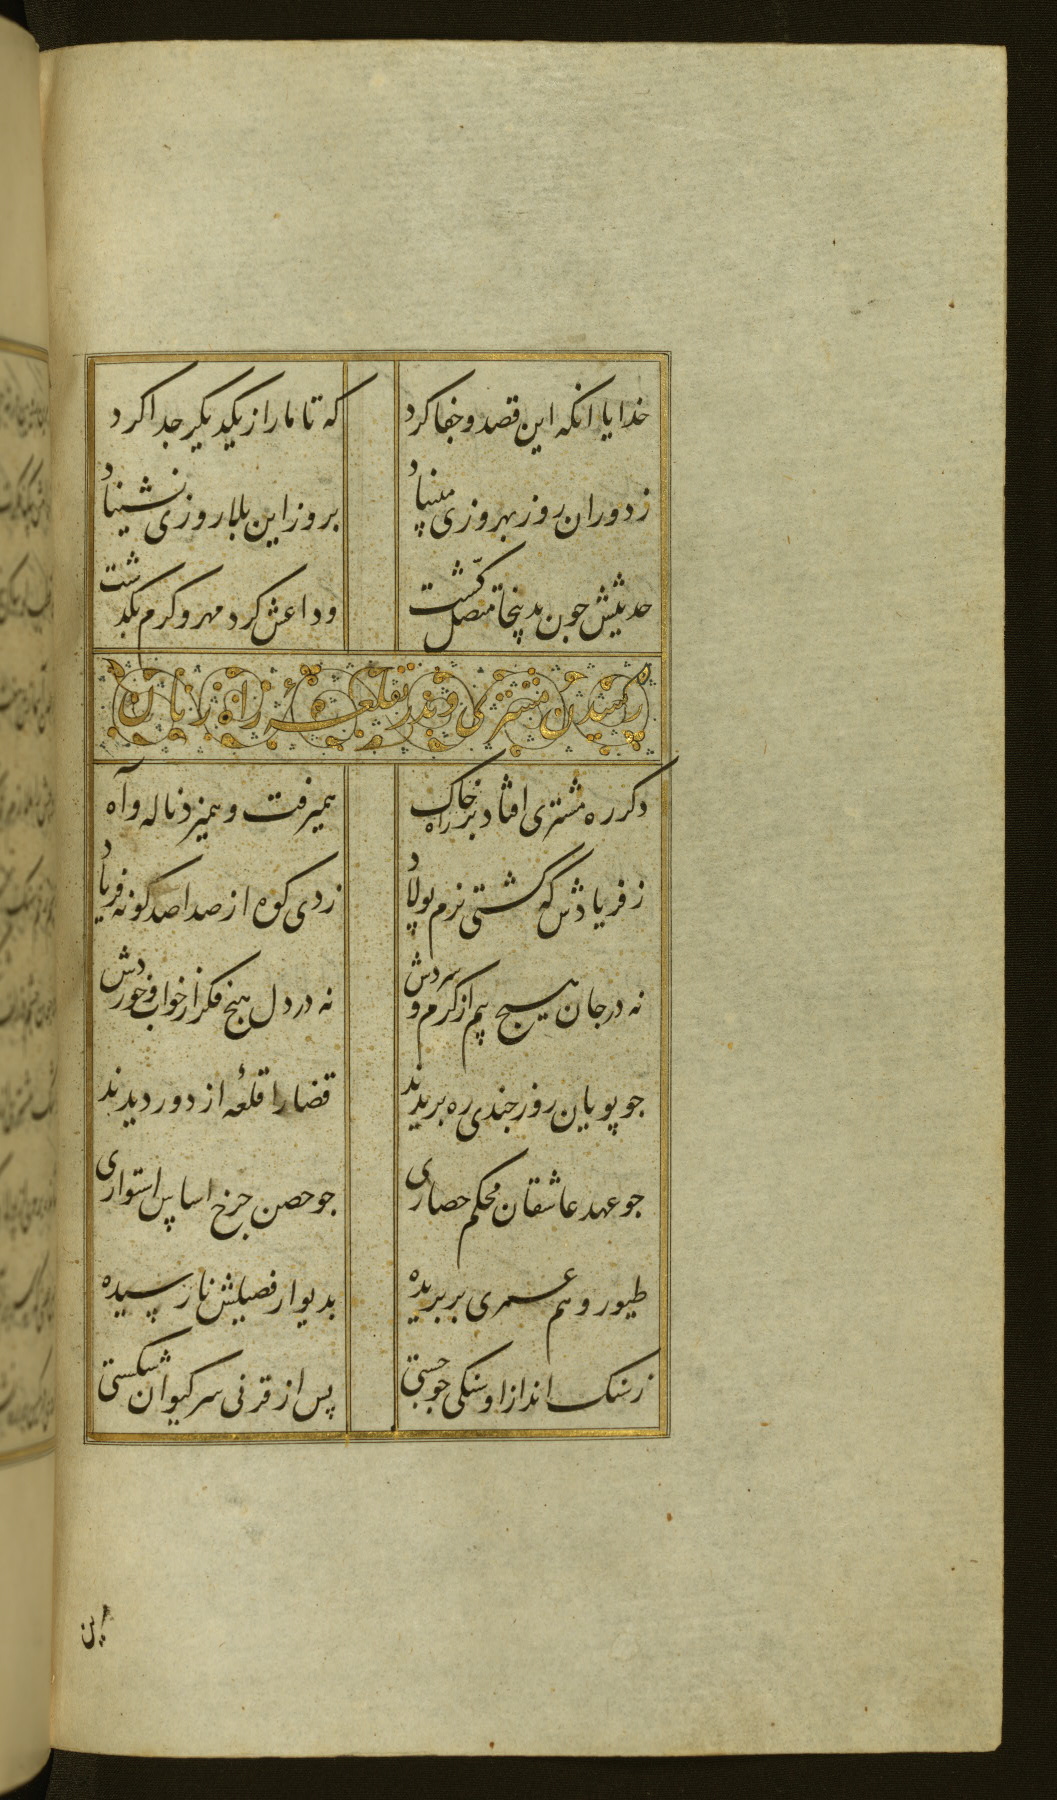 خدایا انکه این قصد و جفا کرد
که تا ما را ز یکدیکر جدا کرد
ز دوران روز بهروزی مبیناد
بروز این بلا روزی نشیناد
حدیثش جون بدینجا متصل کشت
وداعش کرد مهر و کرم بکذشت
رسیدن مشتری و بدر بقلعهٔ راه زنان
دکر ره مشتری افتاد بر خاک راه
همیرفت و همیزد ناله و آه
ز فریادش که کشتی نرم پولاد
زدی کوه از صدا صد کونه فریاد
نه در جان هیچ بیم از کرم و سردش
نه در دل هیچ فکر از خواب و خوردش
جو پویان روز جندی ره بریدند
قضا را قلعهٔ از دور دیدند
جو عهد عاشقان محکم حصاری
جو حصن جرخ اساسی استواری
طیور وهم عمری بر بریده
بدیوار فصیلش نارسیده
ز سنک انداز او سنکی جو جستی
پس از قرنی سر کیوان شکستی
این